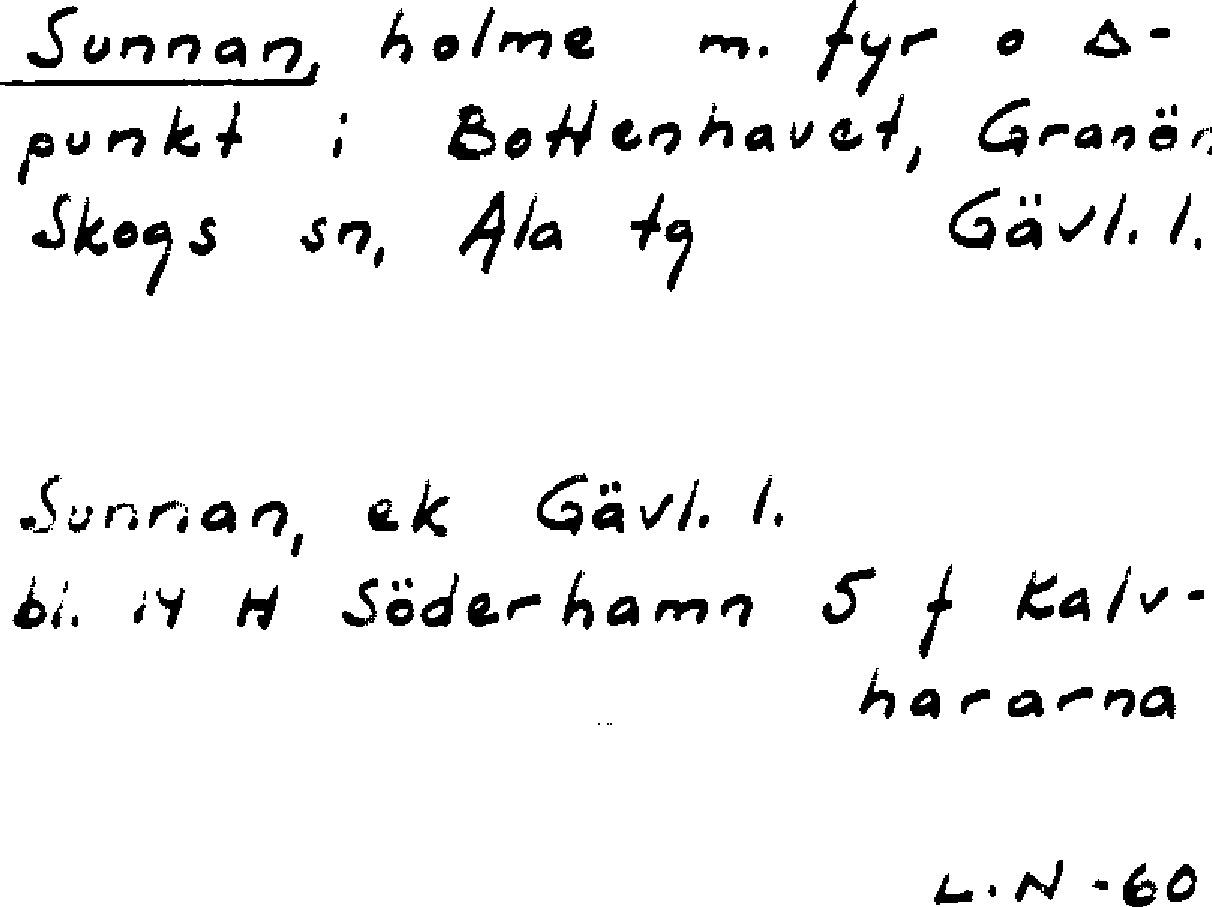 Sunnan, holme m. fyr o Δ-
punkt i Bottenhavet, Granön
Skogs sn, Ala tg Gävl. l.
Sunnan, ek Gävl. l.
bl. 14 H Söderhamn 5 f Kalv-
hararna
L.N -60